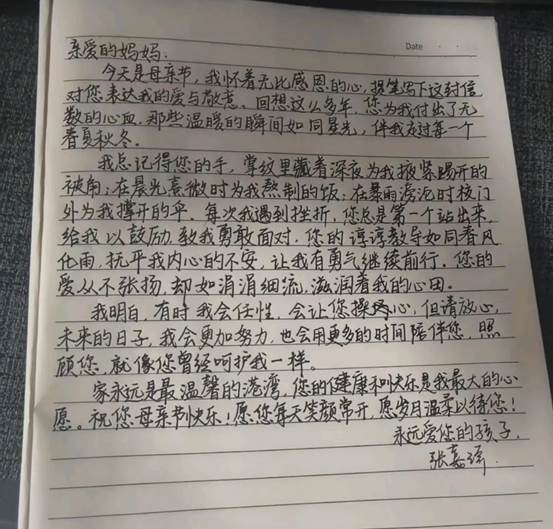 Date
亲爱的妈妈.
今天是母亲节,我怀着无比感恩的心,提笔写下这封信
对您表达我的爱与敬意。回想这么多年,您为我付出了无
数的心血,那些温暖的瞬间如同星光,伴我走过每一个
春夏秋冬。
我总记得您的手,掌纹里藏着深夜为我掖紧踢开的
被角;在晨光熹微时为我熬制的饭;在暴雨滂沱时校门
外为我撑开的伞。每次我遇到挫折,您总是第一个站出来,
给我以鼓励,教我勇敢面对,您的谆谆教导如同春风
化雨,抚平我内心的不安,让我有勇气继续前行。您的
爱从不张扬,却如涓涓细流,滋润着我的心田。
我明白,有时我会任性,会让您操心,但请放心,
未来的日子,我会更加努力,也会用更多的时间陪伴您,照
顾您,就像您曾经呵护我一样。
家永远是最温馨的港湾,您的健康和快乐是我最大的心
愿。祝您母亲节快乐!愿您每天笑颜常开,愿岁月温柔以待您!
永远爱您的孩子,
张嘉